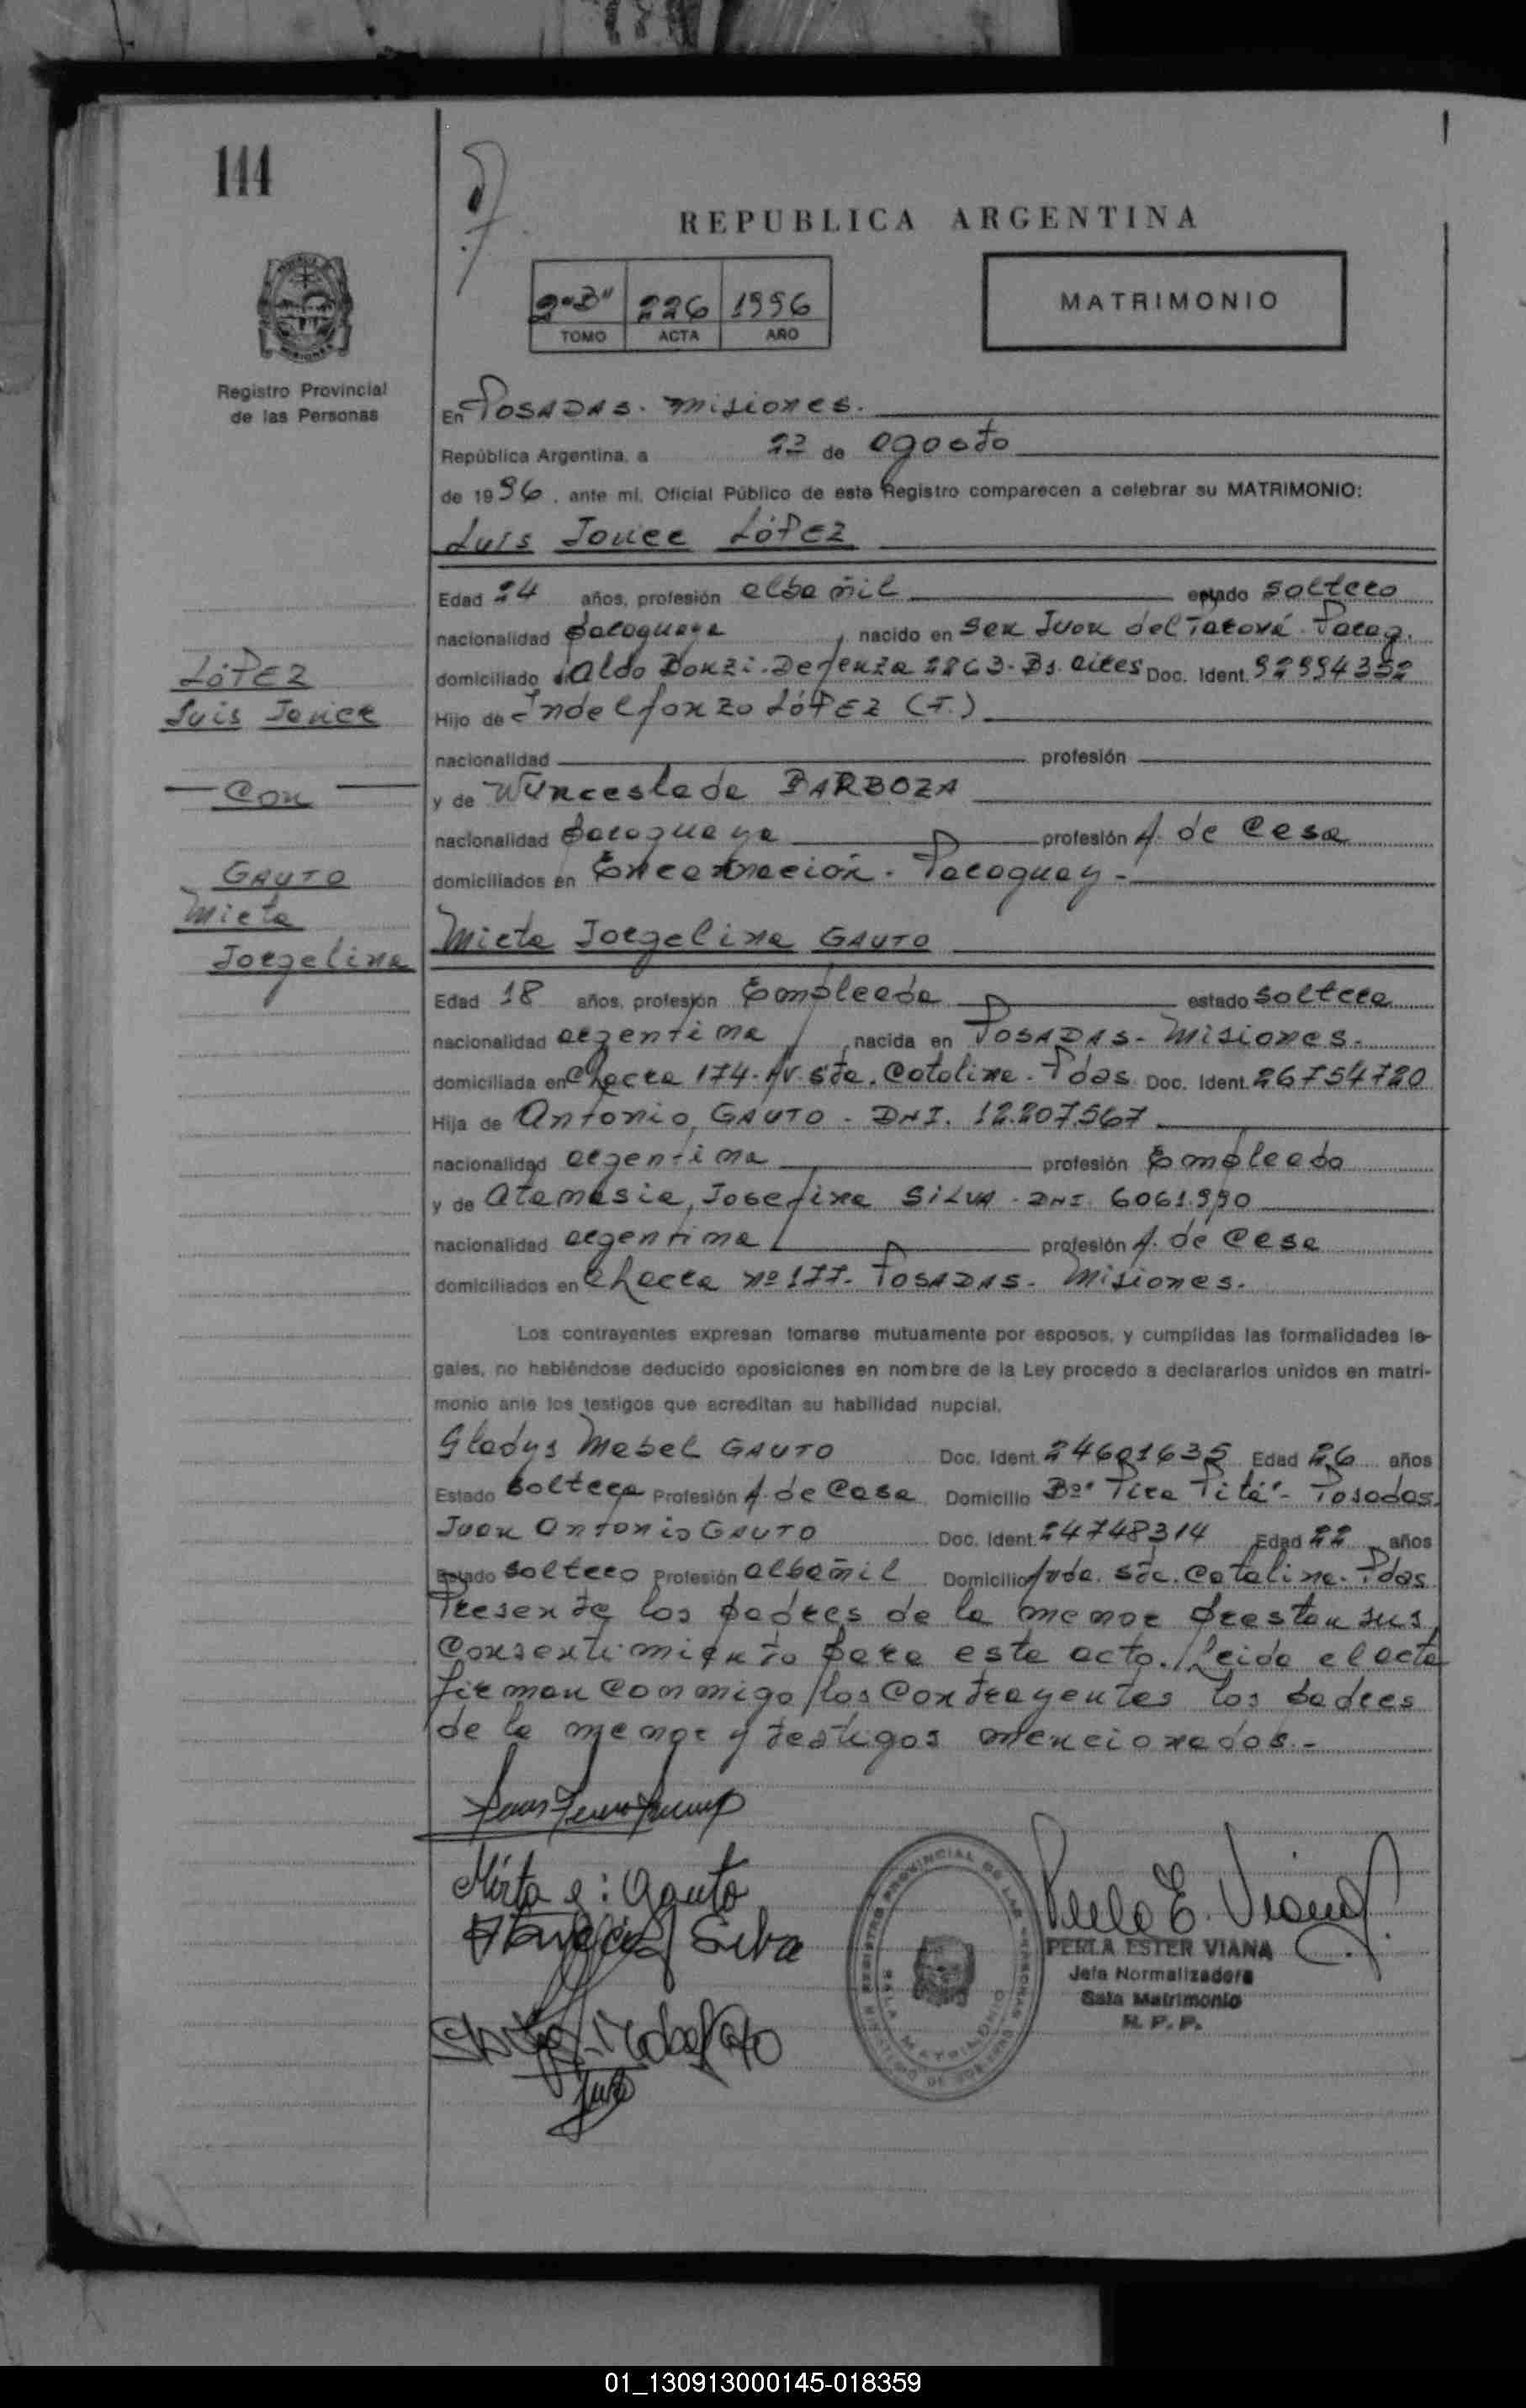 144
REPUBLICA ARGENTINA
2"B" 226 1996
TOMO ACTA AÑO
MATRIMONIO
Registro Provincial
de las Personas
En POSADAS. Misiones.
República Argentina, a 22 de agosto
de 1996, ante mí, Oficial Público de este Registro comparecen a celebrar su MATRIMONIO:
Luis Javier LóPEZ
Edad 24 años, profesión albañil estado soltero
nacionalidad paraguaya, nacido en San Juan del Paraná. Parag.
domiciliado Aldo Bonzi. Defenza 2863. Bs. Aires Doc. Ident. 92994352
Hijo de Indelfonzo LóPEZ (F.)
nacionalidad profesión
y de Wunceslada BARBOZA
nacionalidad paraguaya profesión A. de Casa
domiciliados en Encarnación. Paraguay.
LóPEZ
Luis Javier
Con
GAUTO
Mirta
Jorgelina
Mirta Jorgelina GAUTO
Edad 18 años, profesión Empleada estado soltera
nacionalidad argentina, nacida en POSADAS. Misiones.
domiciliada en Chacra 174. Av. Sta. Catalina. Pdas Doc. Ident. 26754720
Hija de Antonio, GAUTO. DNI. 12.207.567
nacionalidad argentina profesión Empleado
y de Atanasia, Josefina SILVA. DNI. 6061.990
nacionalidad argentina profesión A. de Casa
domiciliados en Chacra nº 177. POSADAS. Misiones.
Los contrayentes expresan tomarse mutuamente por esposos, y cumplidas las formalidades le-
gales, no habiéndose deducido oposiciones en nombre de la Ley procedo a declararlos unidos en matri-
monio ante los testigos que acreditan su habilidad nupcial.
Gladys Mabel GAUTO Doc. Ident. 24601635 Edad 26 años
Estado soltera Profesión A. de Casa Domicilio Bº "Tira Pitá" - Posadas.
Juan Antonio GAUTO Doc. Ident. 24748314 Edad 22 años
Estado soltero Profesión albañil Domicilio Avda. Sta. Catalina. Pdas
Presente los padres de la menor prestan sus
Consentimiento para este acto. Leida el acta
firman conmigo los Contrayentes los padres
de la menor y testigos mencionados.-
Mirta J. Gauto
Silva
PERLA ESTER VIANA
Jefa Normalizadora
Sala Matrimonio
R. P. P.
REGISTRO PROVINCIAL DE LAS PERSONAS
SALA MATRIMONIO
01_130913000145-018359